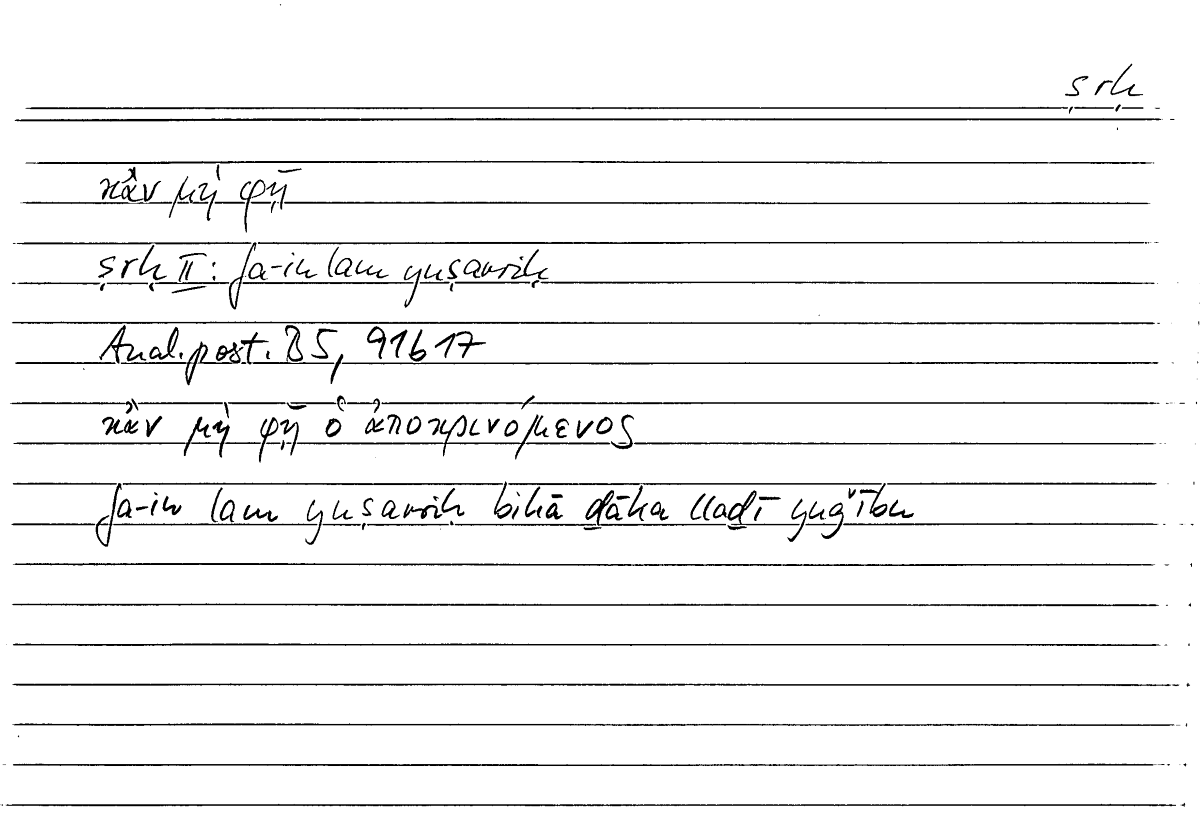 ṣrḥ
κἂν μὴ φῇ
ṣrḥ II: fa-in lam yuṣarriḥ
Anal. post. B5, 91b17
κἂν μὴ φῇ ὁ ἀποκρινόμενος
fa-in lam yuṣarriḥ bihā ḏāka llaḏī yuǧību